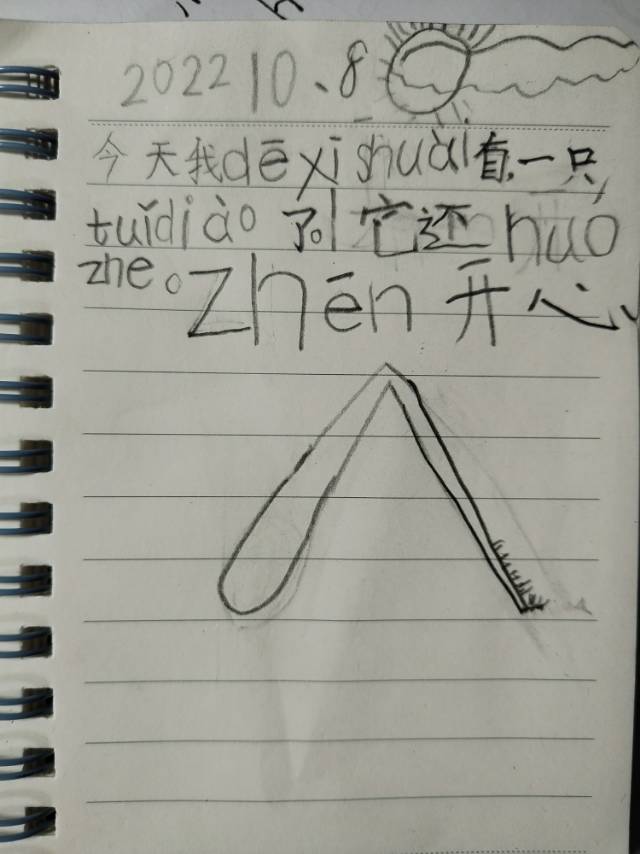 2022 10、8
今天我dē xī shuài有一只
tuǐdiào了。它还huo
zhe。zhēn开心